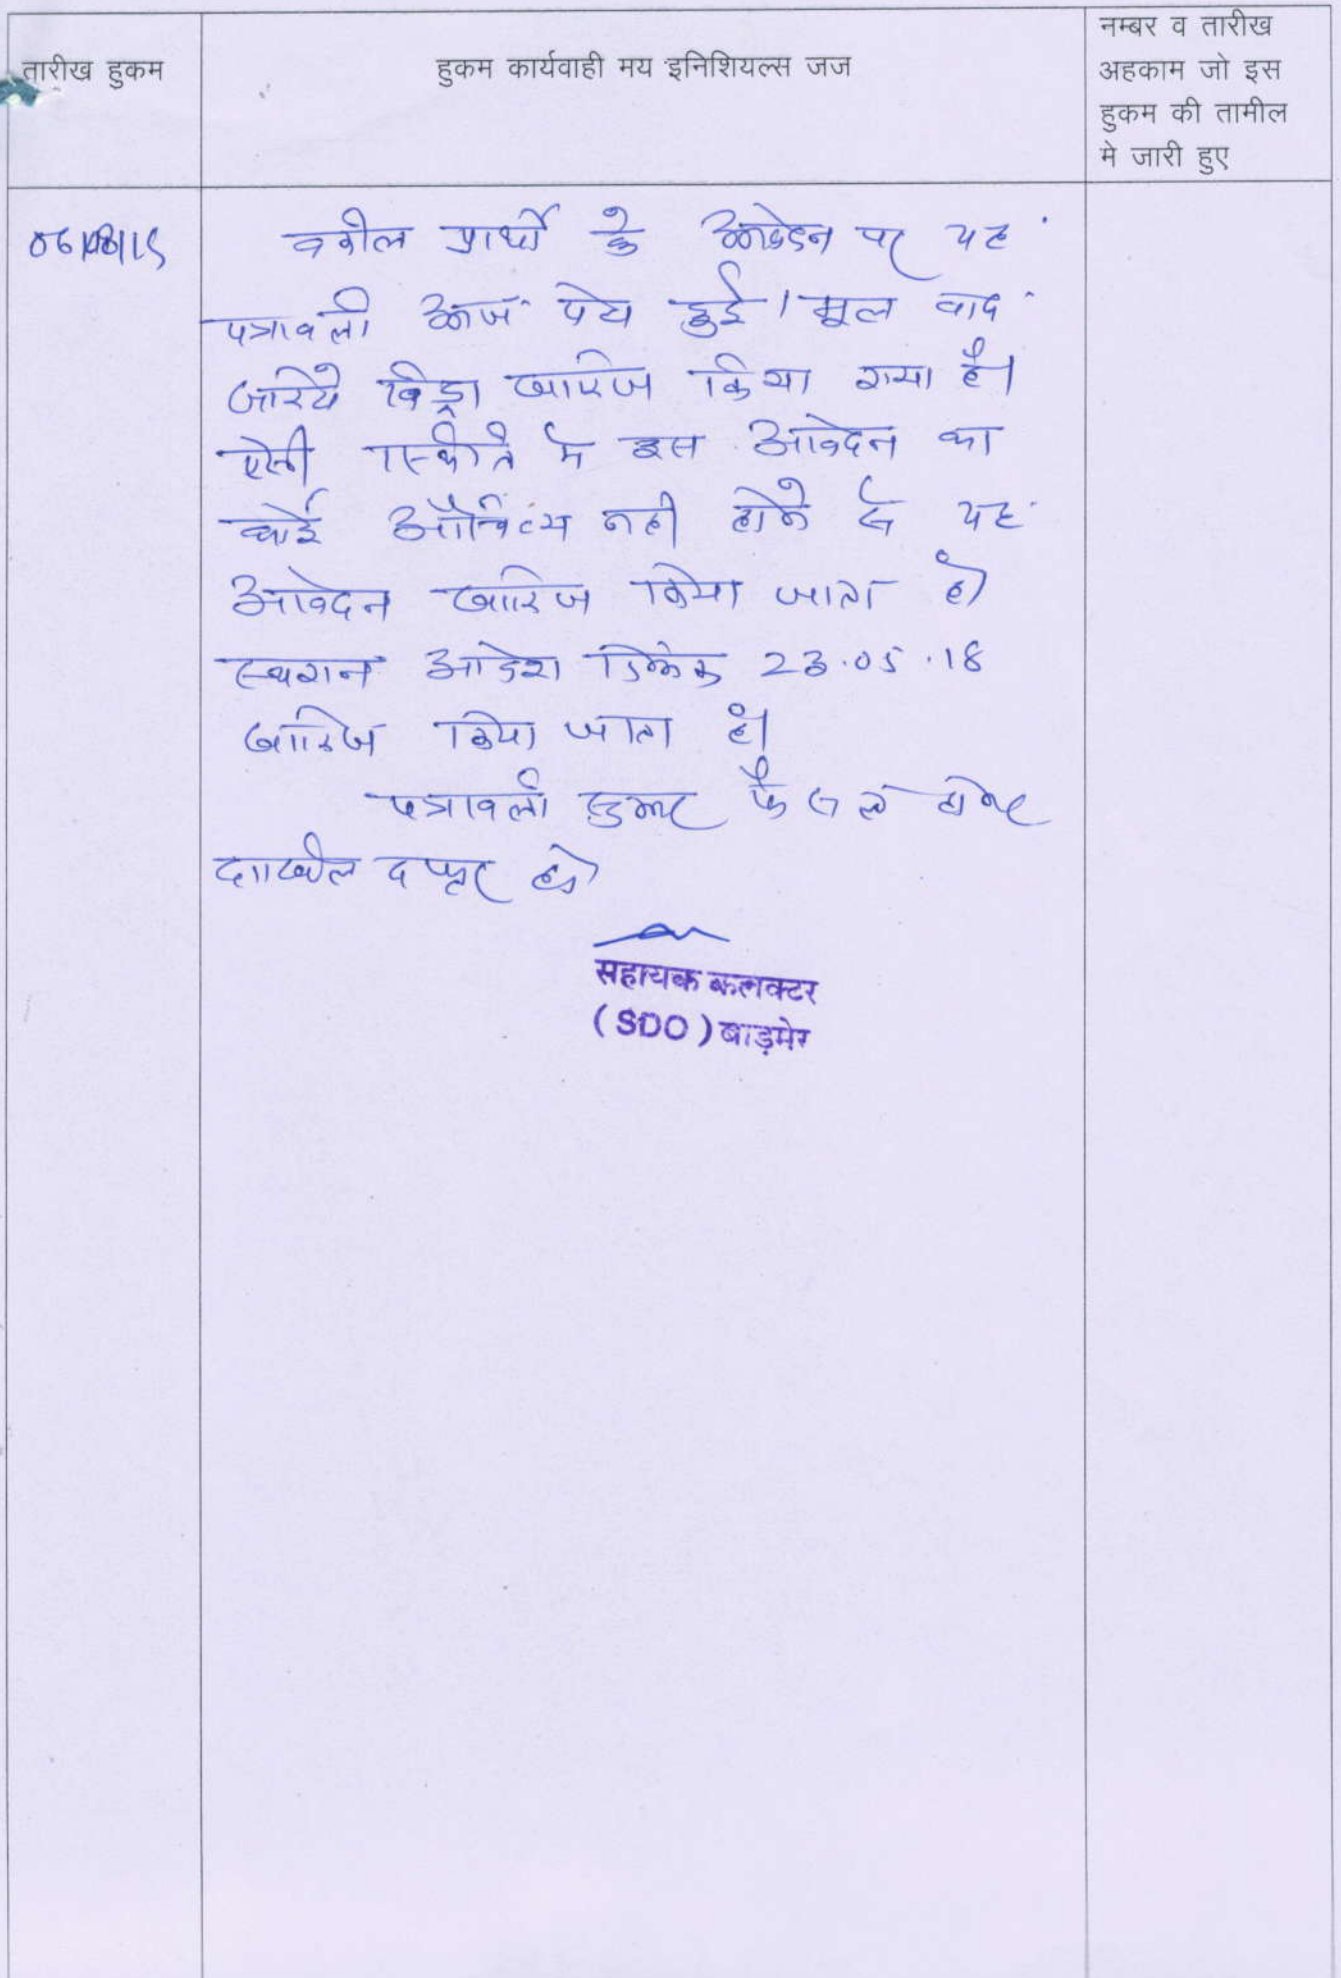 तारीख हुकम
हुकम कार्यवाही मय इनिशियल्स जज
नम्बर व तारीख
अहकाम जो इस
हुकम की तामील
मे जारी हुए
वकील प्रार्थी के आवेदन पर यह
पत्रावली आज पेश हुई। मूल वाद
जरिये विड्रा खारिज किया गया है।
ऐसी स्थिति मे इस आवेदन का
कोई औचित्य नही होने से यह
आवेदन खारिज किया जाता है।
स्थगन आदेश दिनांक 23.05.18
खारिज किया जाता है।
पत्रावली फैसल होकर
दाखिल दफ्तर हो।
सहायक कलक्टर
(SDO) बाड़मेर